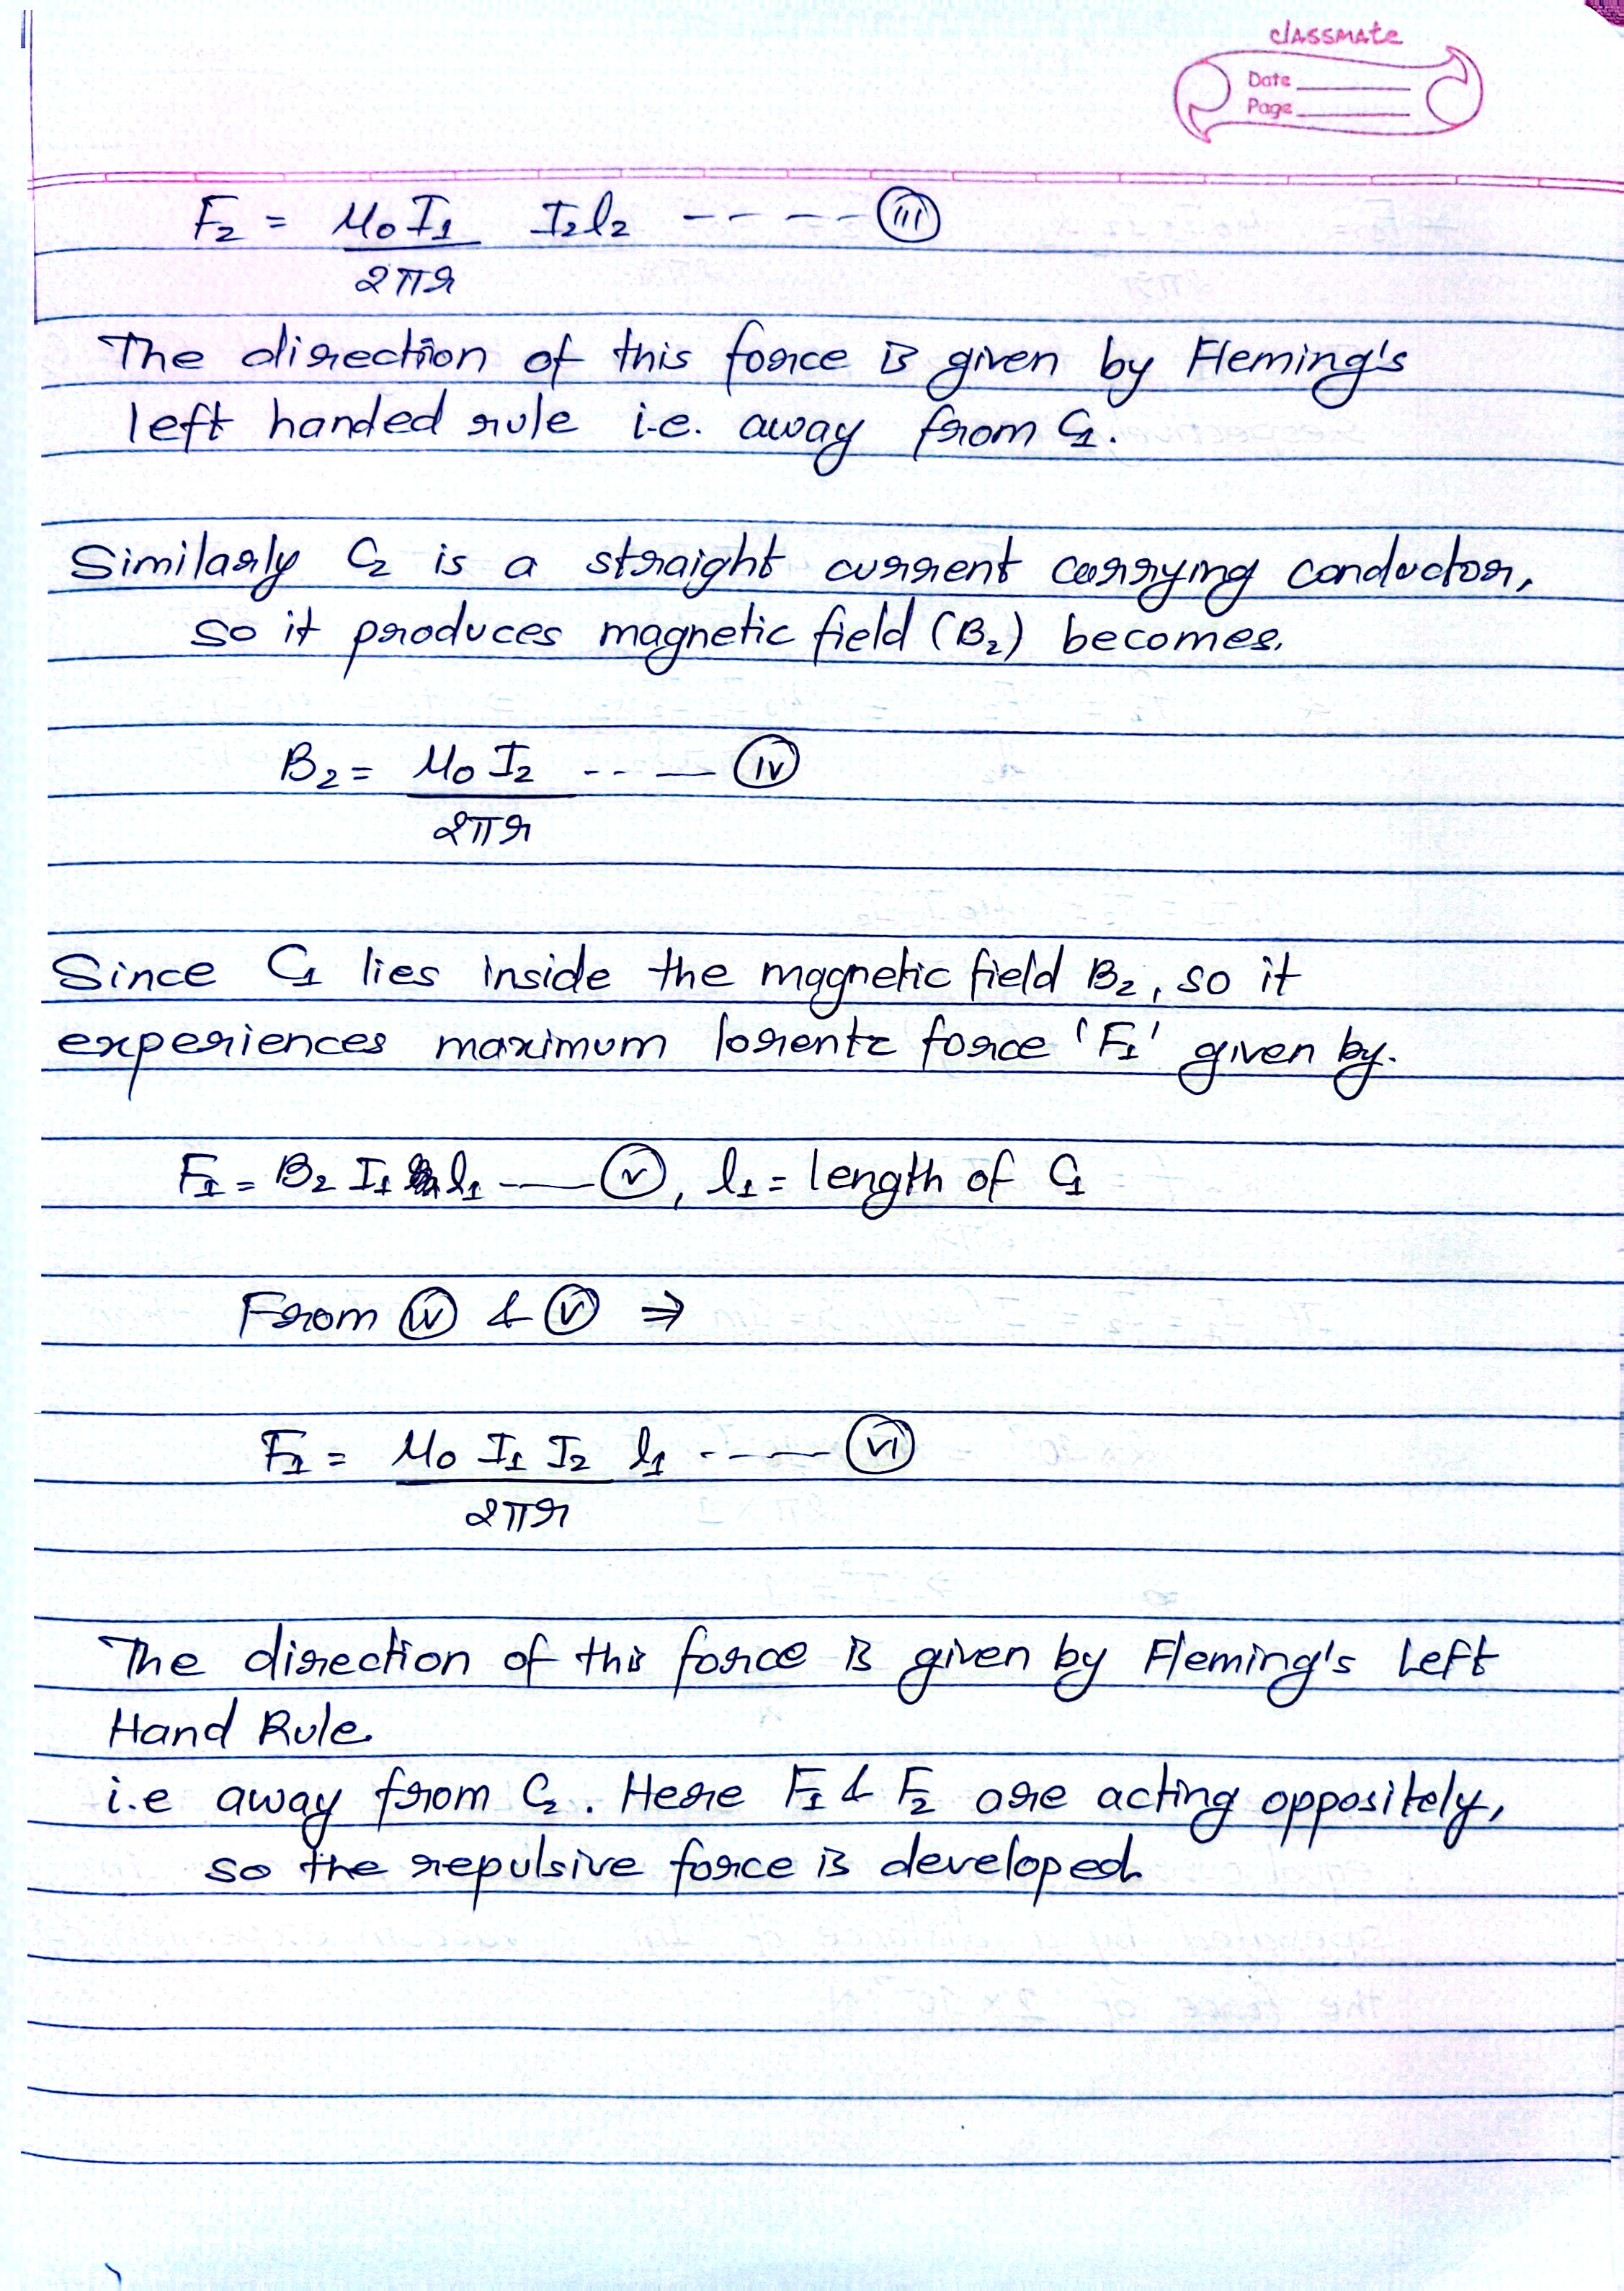 classmate
Date
Page
F₂ = μ₀I₁/2πr I₂l₂ ----- (iii)
The direction of this force is given by Fleming's
left handed rule i.e. away from C₁.
Similarly C₂ is a straight current carrying conductor,
so it produces magnetic field (B₂) becomes.
B₂ = μ₀I₂/2πr ---- (iv)
Since C₁ lies inside the magnetic field B₂, so it
experiences maximum lorentz force 'F₁' given by.
F₁ = B₂ I₁ l₁ --- (v), l₁ = length of C₁
From (iv) & (v) ⇒
F₁ = μ₀ I₁ I₂/2πr l₁ ----- (vi)
The direction of this force is given by Fleming's Left
Hand Rule.
i.e away from C₂. Here F₁ & F₂ are acting oppositely,
so the repulsive force is developed.